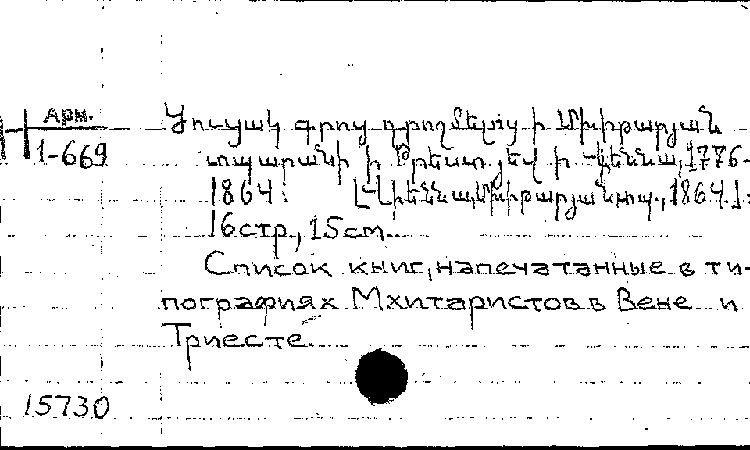 Арм.
1-669
Ցուցակ գրոց դրոշմելոց ի Մխիթարյան
տպարանի ի Թրեստ եվ ի Վեննա, 1776-
1864: [Վիեննա, Մխիթարյան տպ., 1864.]:
16стр., 15см.
Список книг, напечатанные в ти-
пографиях Мхитаристов в Вене и
Триесте.
15730